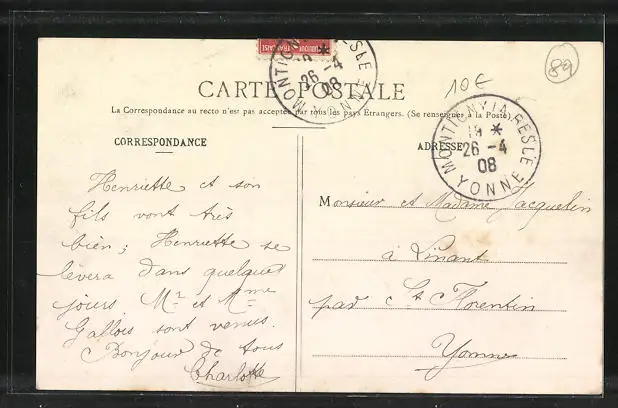 RÉPUBLIQUE FRANÇAISE
89
10€
CARTE POSTALE
La Correspondance au recto n'est pas acceptée par tous les pays Étrangers. (Se renseigner à la Poste).
MONTIGNY-LA-RESLE
18 *
26 -4
08
YONNE
MONTIGNY-LA-RESLE
18 *
26 -4
08
YONNE
CORRESPONDANCE
Henriette et son
fils vont très
bien ; Henriette se
lèvera dans quelques
jours Mr et Mme
Gallois sont venus.
Bonjour de tous
Charlotte
ADRESSE
Monsieur et Madame Jacquelin
à
par St Florentin
Yonne